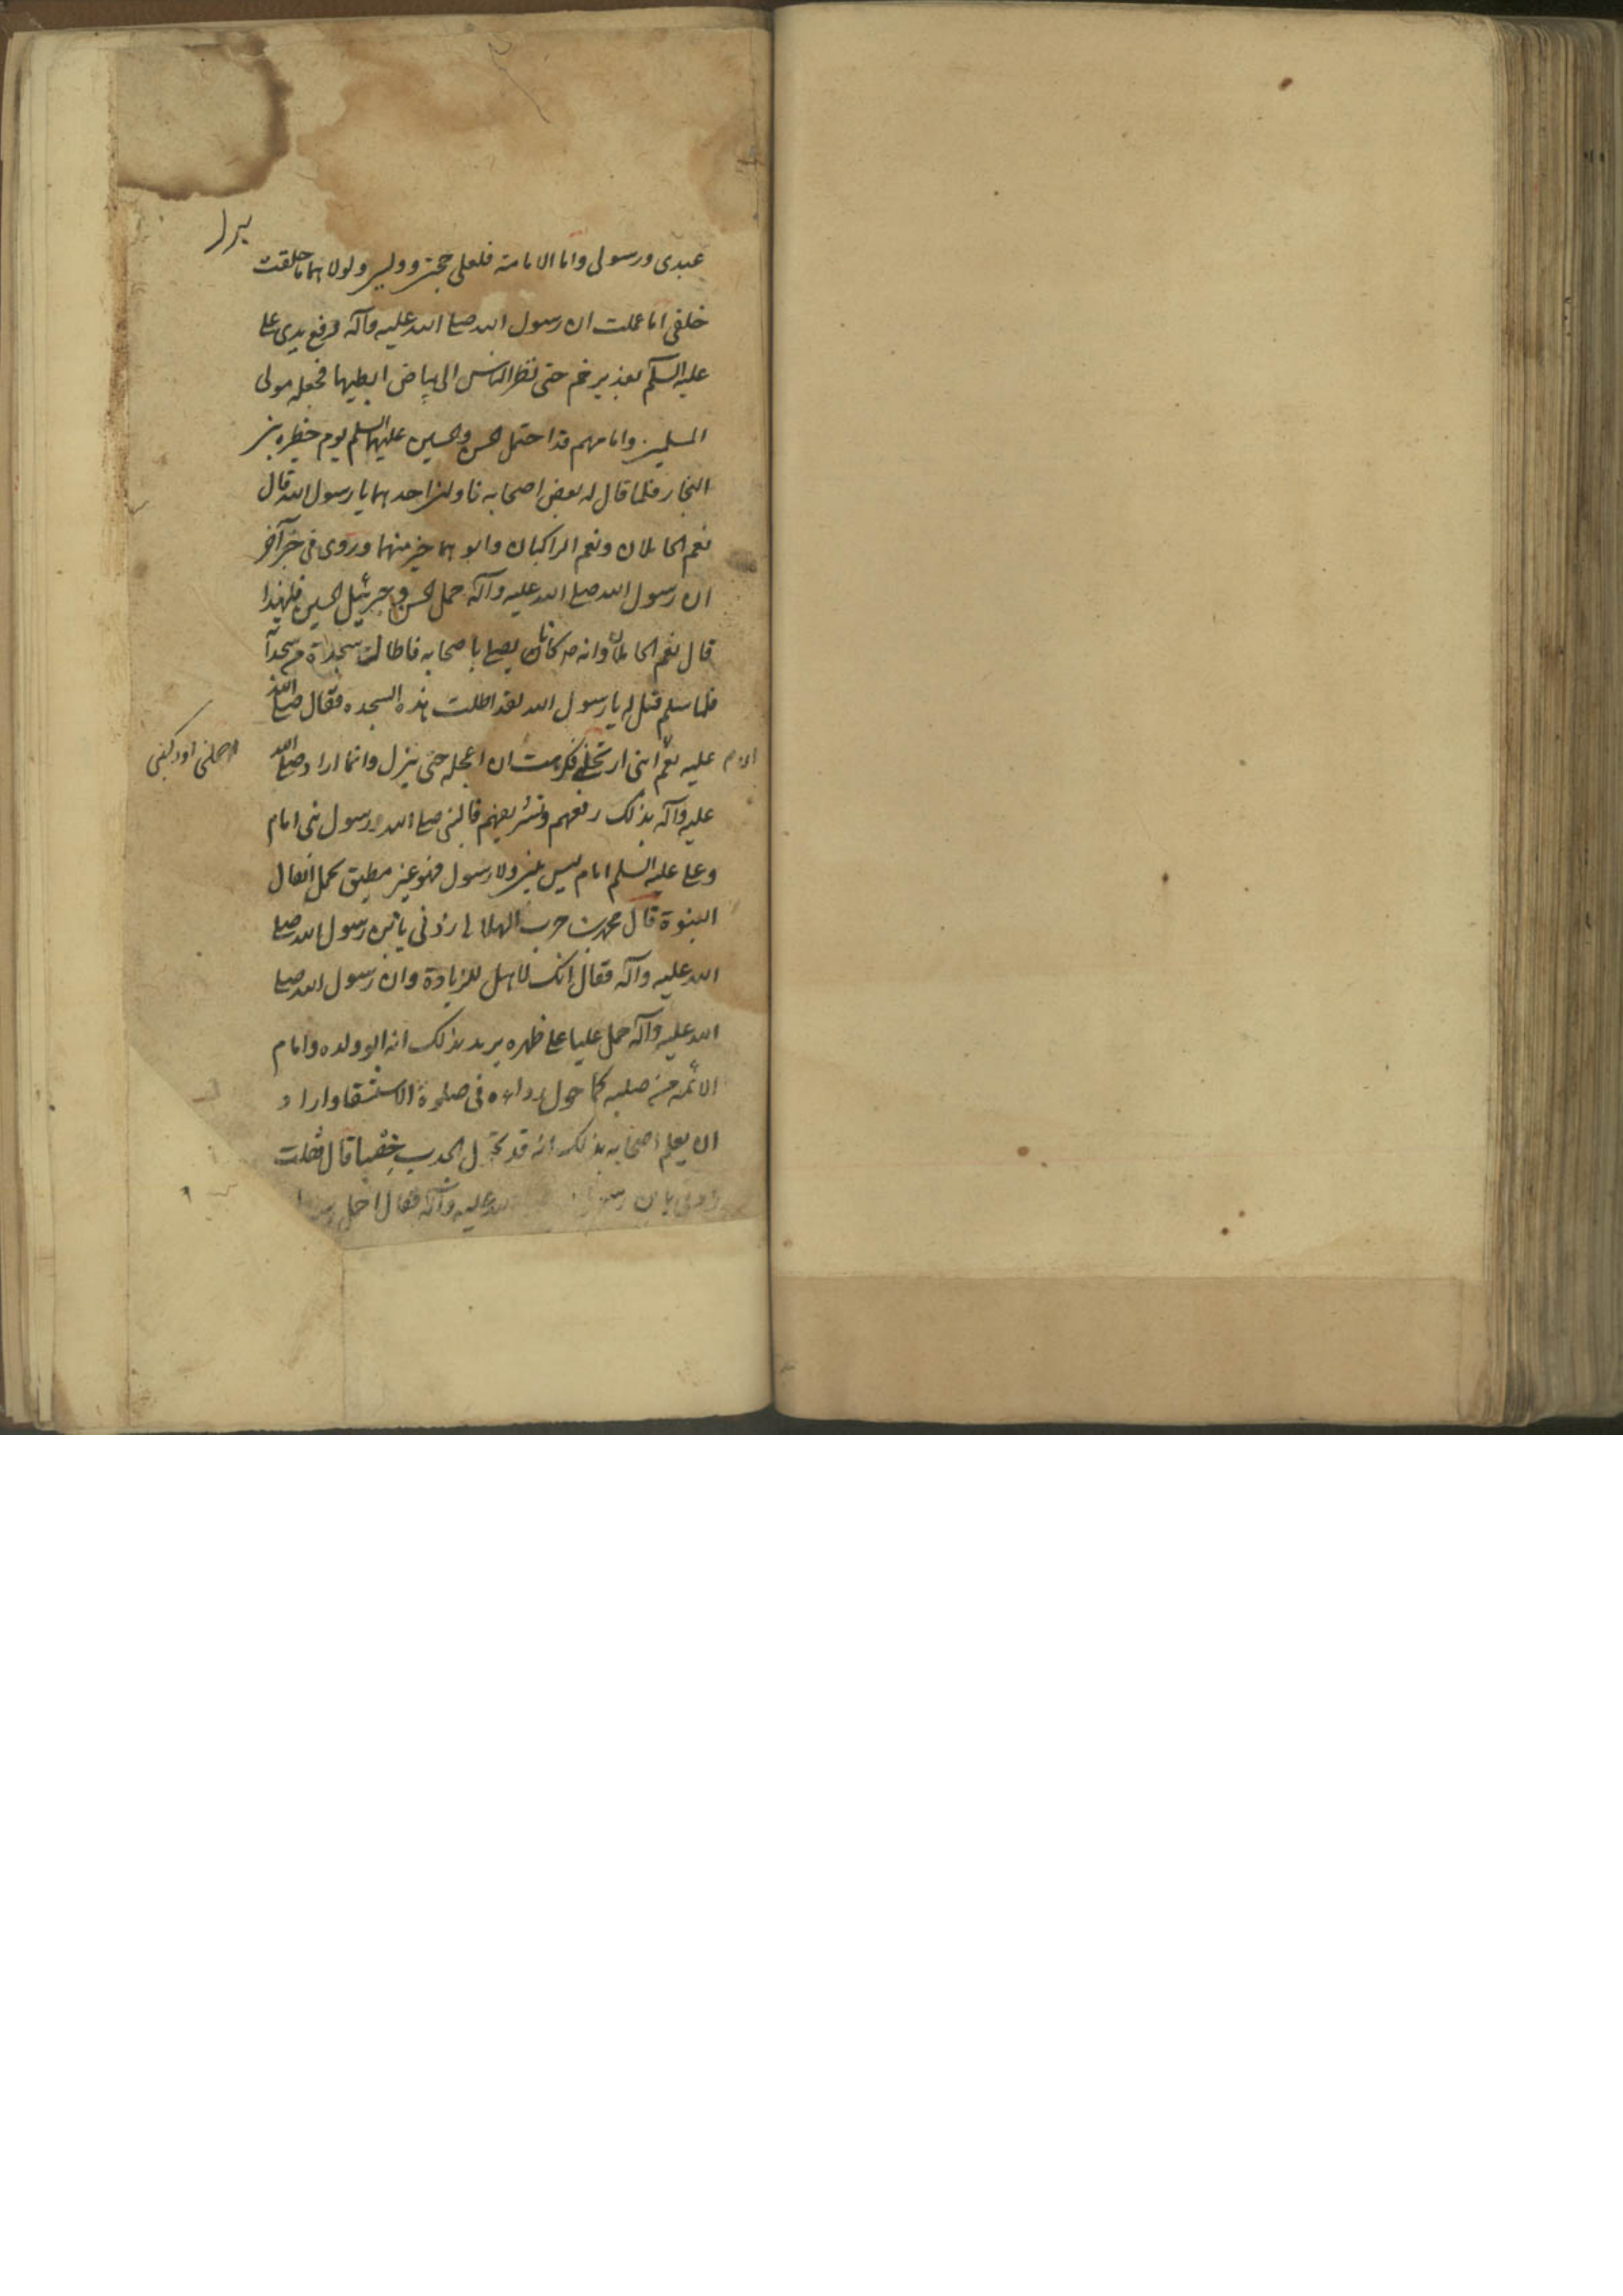 عبدی ورسولی واما الامامة فلعلی حجتی وولیی ولولاهما ما خلقت
خلقی اما علمت ان رسول الله صلی الله علیه وآله رفع یدی علی
علیه السلم بغدیر خم حتی نظر الناس الی بیاض ابطیهما فجعله مولی
المسلمین وامامهم وقد احتمل الحسن والحسین علیهما السلم یوم حظیره بنی
النجار فلما قال له بعض اصحابه ناولنی احدهما یا رسول الله قال
نعم الحاملان ونعم الراکبان وابوهما خیر منهما وروی فی خبر آخر
ان رسول الله صلی الله علیه وآله حمل الحسن وجبرئیل الحسین فلهذا
قال نعم الحاملان وانه ص کان یصلی باصحابه فاطال سجدة من سجداته
فلما سلم قیل له یا رسول الله لقد اطلت هذه السجده فقال صلی الله
علیه نعم ابنی ارتحلنی فکرهت ان اعجله حتی ینزل وانما اراد صلی الله
علیه وآله بذلک رفعهم وتشریفهم فالنبی صلی الله رسول نبی امام
وعلی علیه السلم امام لیس بنبی ولا رسول فهو غیر مطیق بحمل اثقال
النبوة قال محمد بن حرب الهلالی زدنی یا بن رسول الله صلی
الله علیه وآله فقال انک لاهل للزیادة وان رسول الله صلی
الله علیه وآله حمل علیا علی ظهره یرید بذلک انه ابو ولده وامام
الائمه من صلبه کما حول رداءه فی صلوة الاستسقا واراد
ان یعلم اصحابه بذلک انه قد تحول الجدب خصبا قال فقلت
زدنی یا بن رسول الله علیه وآله فقال احمل